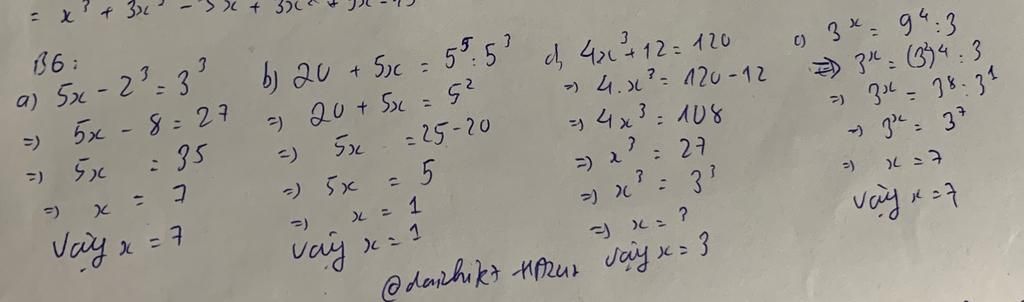 = x³ + 3x² - 3x + 3x² + 9x - 
B6:
a) 5x - 2³ = 3³
=) 5x - 8 = 27
=) 5x = 35
=) x = 7
Vậy x = 7
b) 20 + 5x = 5⁵ : 5³
=) 20 + 5x = 5²
=) 5x = 25 - 20
=) 5x = 5
=) x = 1
Vậy x = 1
d, 4x³ + 12 = 120
=) 4.x³ = 120 - 12
=) 4x³ = 108
=) x³ = 27
=) x³ = 3³
=) x = 3
Vậy x = 3
c) 3ˣ = 9⁴ : 3
=) 3ˣ = (3²)⁴ : 3
=) 3ˣ = 3⁸ : 3¹
=) 3ˣ = 3⁷
=) x = 7
Vậy x = 7